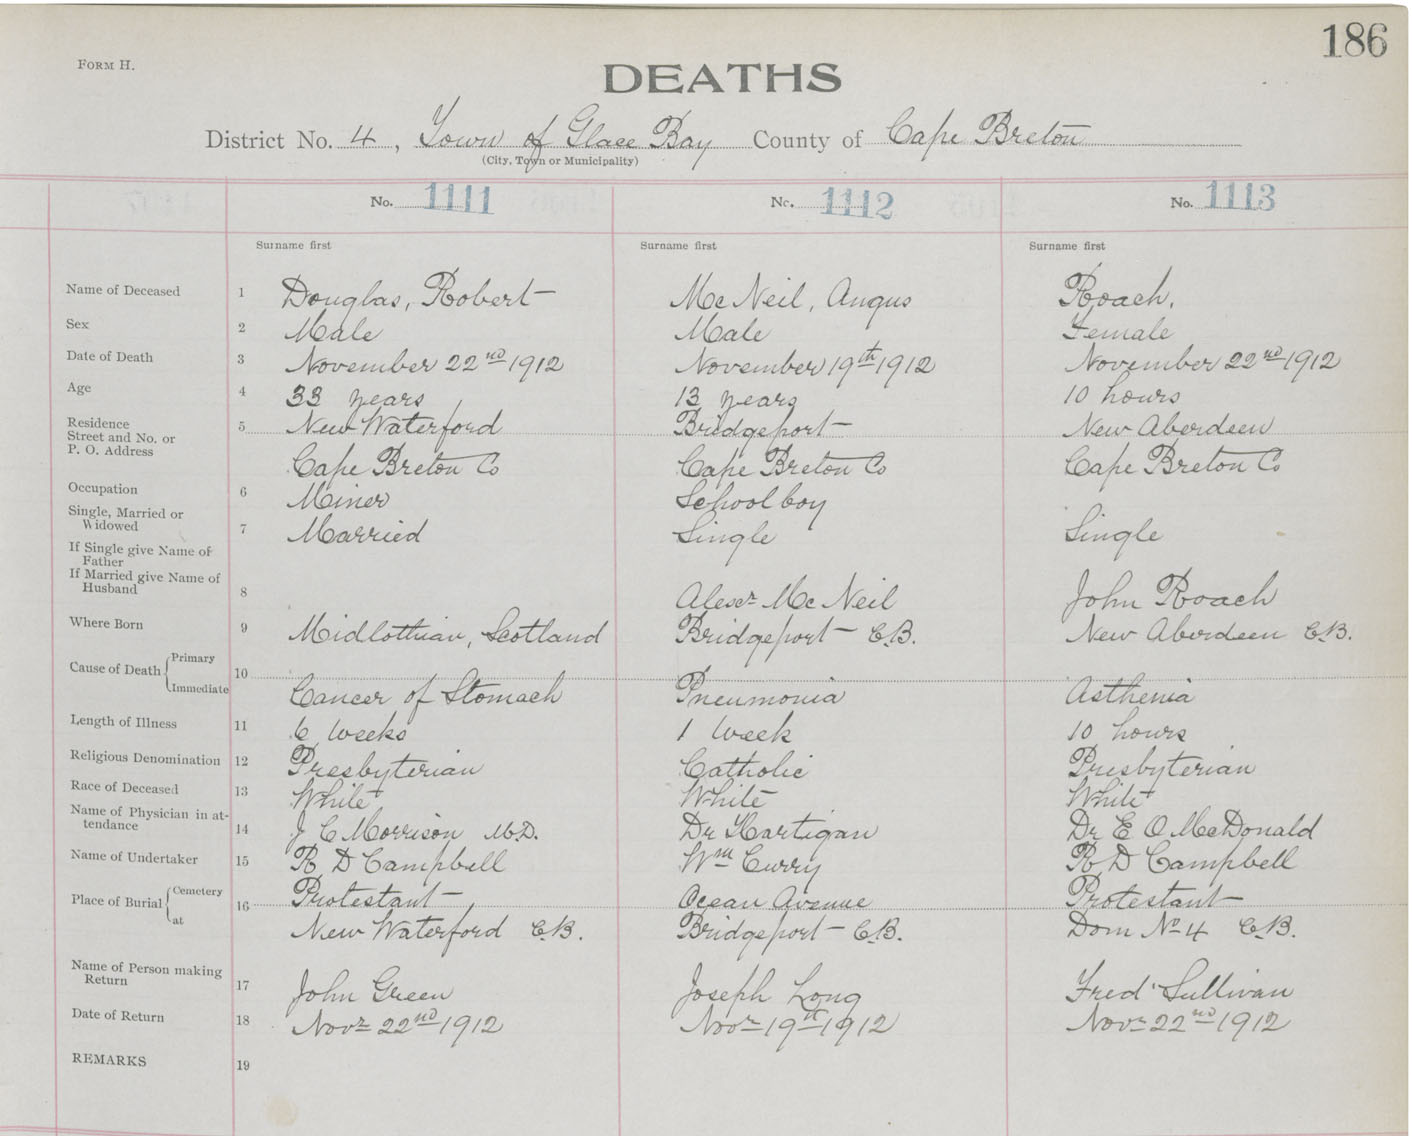 186
FORM H.
DEATHS
District No. 4, Town of Glace Bay County of Cape Breton
(City, Town or Municipality)
No. 1111 No. 1112 No. 1113
Surname first Surname first Surname first
Name of Deceased 1 Douglas, Robert McNeil, Angus Roach,
Sex 2 Male Male Female
Date of Death 3 November 22nd 1912 November 19th 1912 November 22nd 1912
Age 4 33 years 13 years 10 hours
Residence 5 New Waterford Bridgeport New Aberdeen
Street and No. or
P. O. Address Cape Breton Co Cape Breton Co Cape Breton Co
Occupation 6 Miner Schoolboy
Single, Married or
Widowed 7 Married Single Single
If Single give Name of
Father
If Married give Name of
Husband 8 Alexr McNeil John Roach
Where Born 9 Midlothian, Scotland Bridgeport C.B. New Aberdeen C.B.
Cause of Death { Primary 10
Immediate Cancer of Stomach Pneumonia Asthenia
Length of Illness 11 6 weeks 1 week 10 hours
Religious Denomination 12 Presbyterian Catholic Presbyterian
Race of Deceased 13 White White White
Name of Physician in at-
tendance 14 J C Morrison M.D. Dr Hartigan Dr E O McDonald
Name of Undertaker 15 R D Campbell Wm Curry R D Campbell
Place of Burial { Cemetery 16 Protestant Ocean Avenue Protestant
at New Waterford C.B. Bridgeport C.B. Dom No 4 C.B.
Name of Person making
Return 17 John Green Joseph Long Fred Sullivan
Date of Return 18 Novr 22nd 1912 Novr 19th 1912 Novr 22nd 1912
REMARKS 19